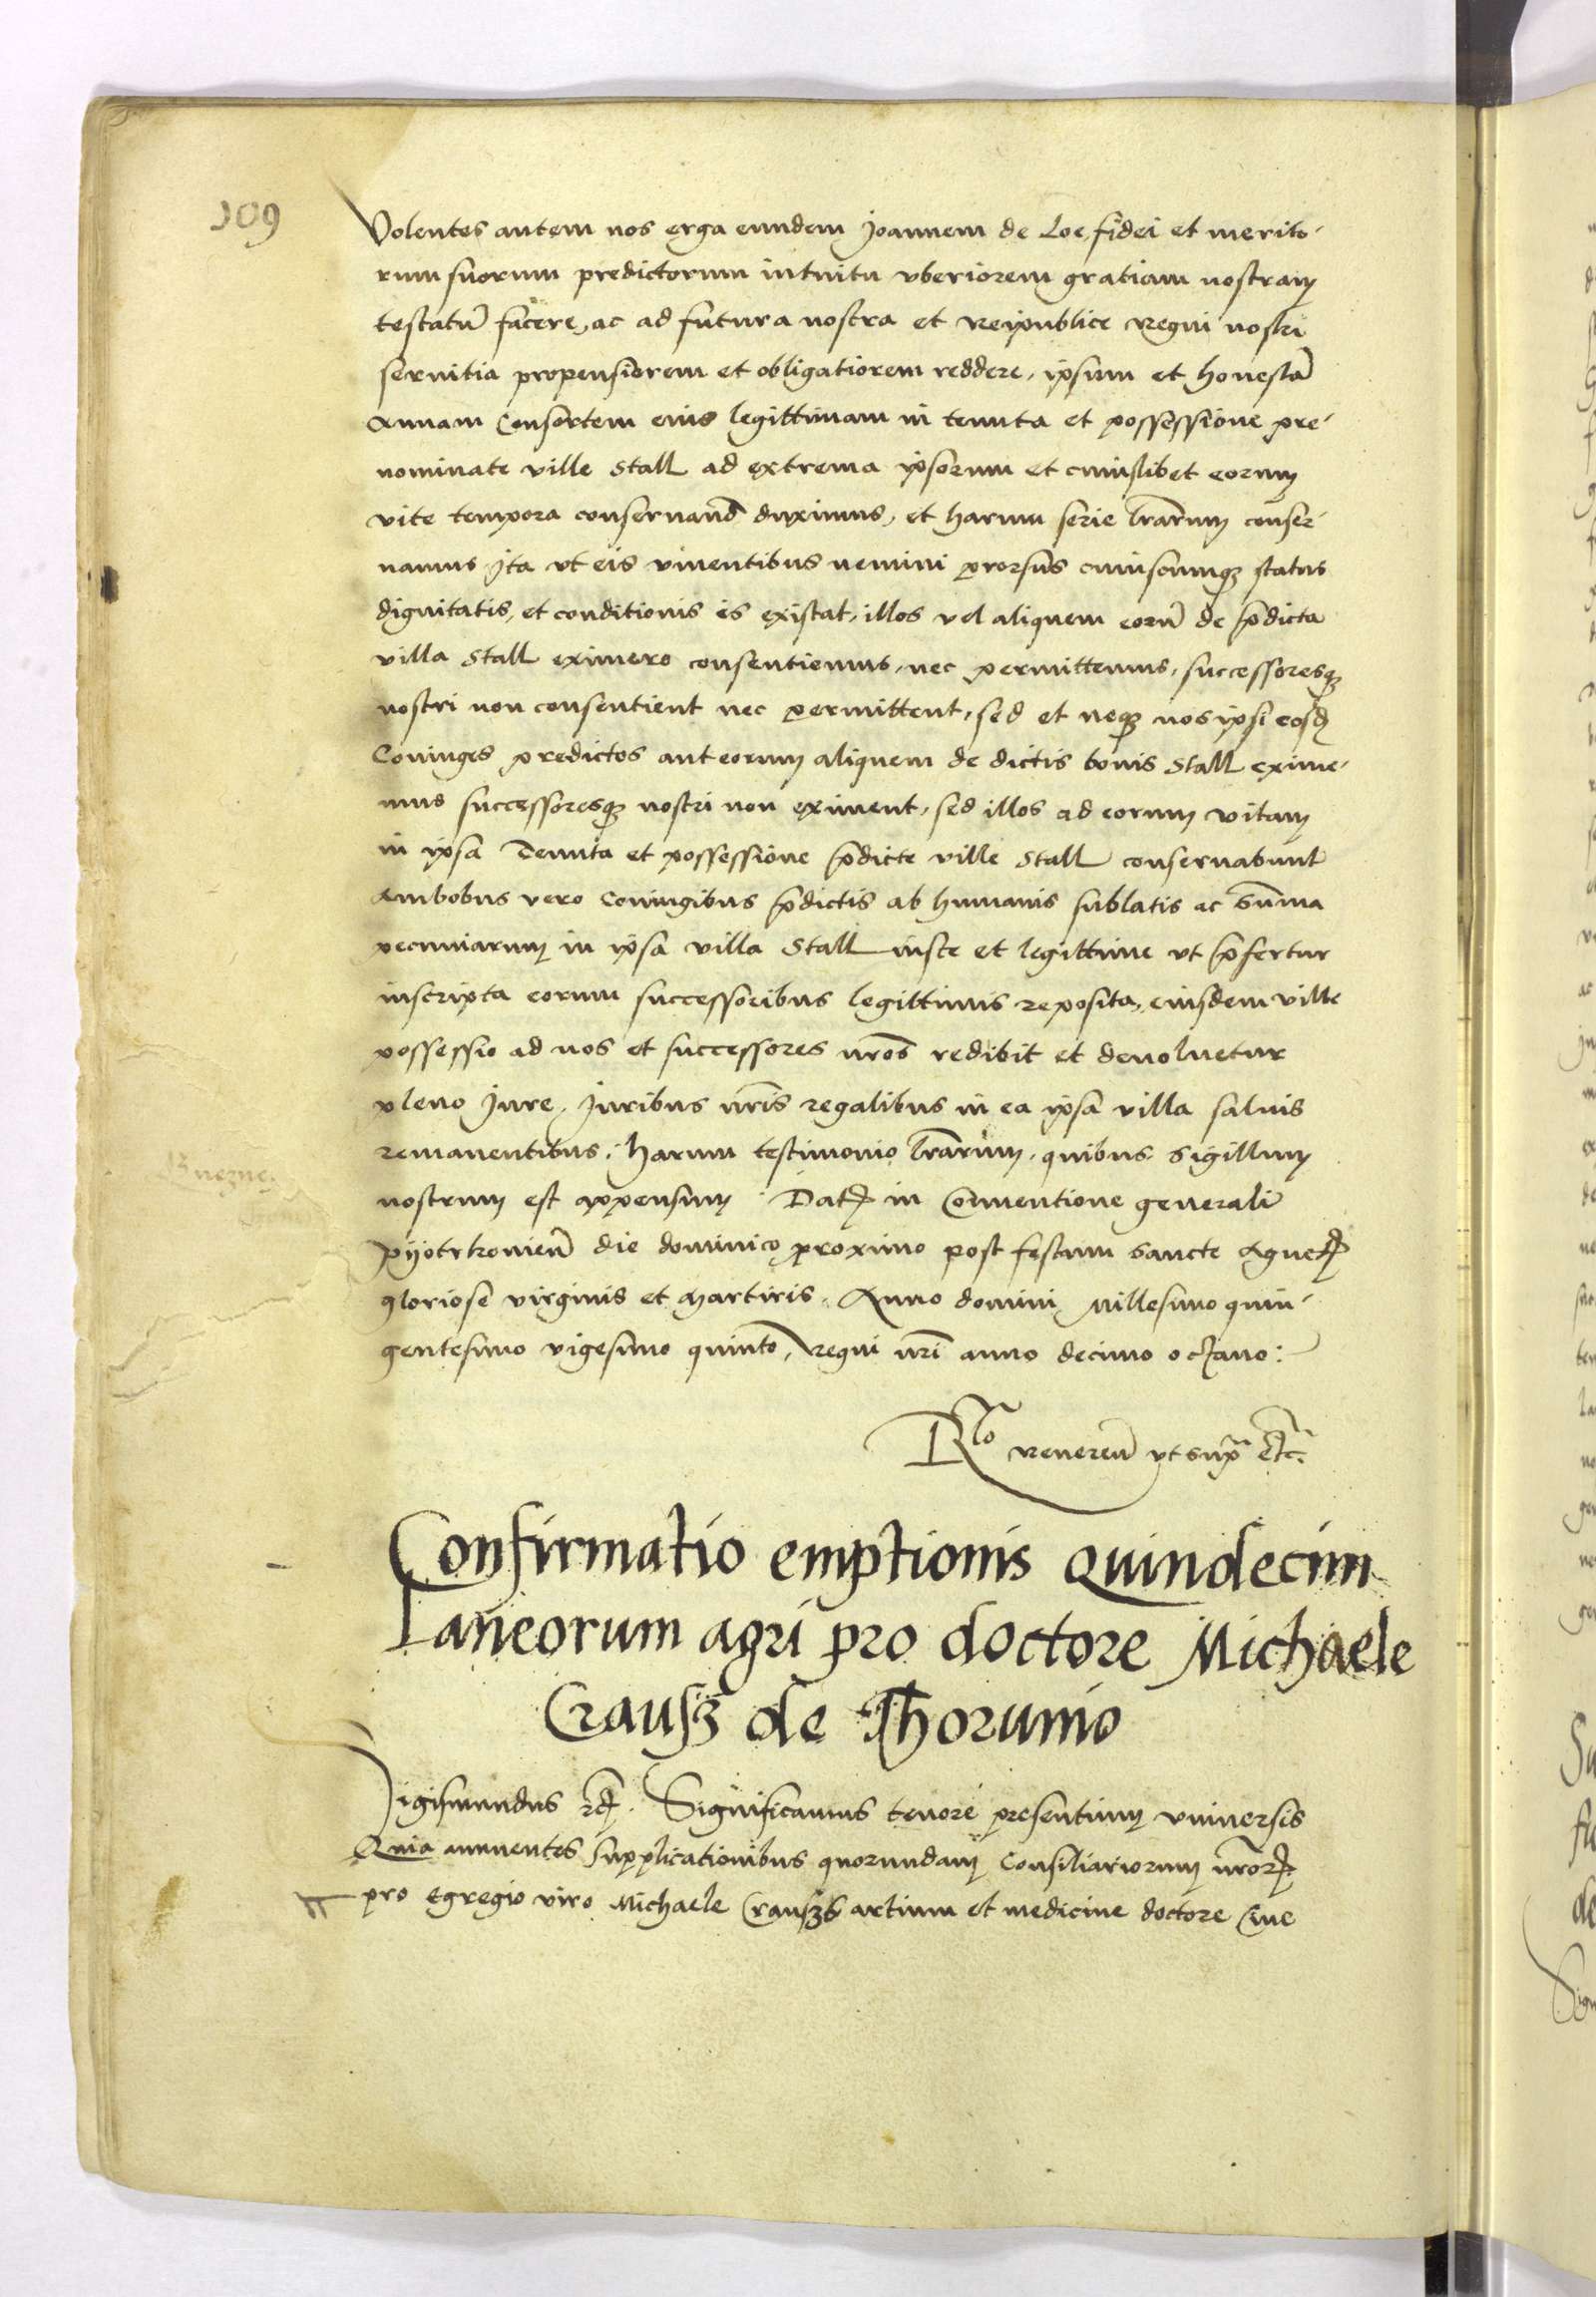 109
Volentes autem nos erga eundem Joannem de Loe, fidei et merito-
rum suorum predictorum intuitu vberiorem gratiam nostram
testatũ facere, ac ad futura nostra et Reipublice Regni nostri
seruitia propensiorem et obligatiorem reddere, ipsum et honestã
Annam Consortem eius legittimam in tenuta et possessione pre-
nominate ville Stall ad extrema ipsorum et cuiuslibet eorum
vite tempora conseruand̃ duximus, et harum serie lr̃arum conser-
uamus Ita vt eis viuentibus nemini prorsus cuiuscumqꝫ status
dignitatis, et conditionis is existat, illos vel aliquem eorũ de p̃dicta
villa Stall eximere consentiemus, nec permittemus, successoresqꝫ
nostri non consentient nec permittent, sed et neqꝫ nos ipsi eosd̃
Coniuges predictos aut eorum aliquem de dictis bonis Stall exime-
mus successoresqꝫ nostri non eximent, sed illos ad eorum vitam
in ipsa Tenuta et possessione p̃dicte ville Stall conseruabunt
Ambobus vero Coniugibus p̃dictis ab humanis sublatis ac sum̃a
pecuniarum in ipsa villa Stall iuste et legittime vt p̃fertur
inscripta eorum successoribus legittimis reposita, eiusdem ville
possessio ad nos et successores nr̃os redibit et deuoluetur
pleno Jure, Juribus nr̃is regalibus in ea ipsa villa saluis
remanentibus. Harum testimonio lr̃arum, quibus Sigillum
nostrum est appensum. Datꝭ in Conuentione generali
Pyotrkouieñ die dominico proximo post festum Sancte Agnetꝭ
gloriose virginis et Martiris. Anno domini Millesimo quin-
gentesimo vigesimo quinto, Regni nr̃i anno decimo octauo:
Rlo venereñ vt supª etc.
Confirmatio emptionis Quindecim
Laneorum agri pro doctore Michaele
Crausz de Thorunio
Sigismundus rcꝭ. Significamus tenore presentium vniuersis
Quia annuentes Supplicationibus quorundam Consiliariorum nr̃orꝭ
pro Egregio viro Michaele Crauszs artium et medicine doctore Ciue